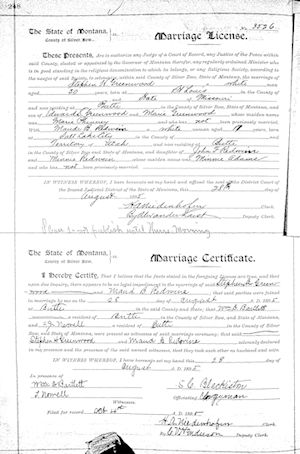 248
No. 3526
The State of Montana,
County of Silver Bow.
Marriage License.
These Presents, Are to authorize any Judge of a Court of Record, any Justice of the Peace within
said County, elected or appointed by the Governor of Montana, any regularly ordained Minister who
is in good standing in the religious denomination to which he belongs, or any Religious Society, according
to the usages of said Society, to solemnize, within said County of Silver Bow, State of Montana, the marriage
of Stephen H. Greenwood a white man,
aged 20 years, born at St Louis
State of Missouri
and now residing at Butte in the County of Silver Bow and State of Montana,
son of Edward Greenwood and Marie Greenwood whose maiden name
was Marie not previously married,
With Maud B. Redwin a white woman, aged 19 years, born
at Salt Lake City
Territory of Utah and now residing at Butte
in the County of Silver Bow and State of Montana, and daughter of John F. Redwin and
Minnie Redwin whose maiden name was Minnie Adams and
has not been previously married.
IN WITNESS WHEREOF, I have hereunto set my hand and affixed the seal of the District Court of
the Second Judicial District of the State of Montana, this 28th day of
August
Clerk
By Deputy Clerk.
not publish until Morning
The State of Montana,
County of Silver Bow.
Marriage Certificate.
I Hereby Certify, That I believe that the facts stated in the foregoing License are true, and that
upon due inquiry, there appears to be no legal impediment to the marriage of said Stephen H. Green
wood and Maud B. Redwin, that said parties were joined
in marriage by me on the 28 day of August A. D.
in Butte in the County and State aforesaid; that Wm D. Bartlett
a resident of Butte in the County of Silver Bow, State of Montana,
and J Nowell a resident of Butte in the County of Silver
Bow and State of Montana, were present as witnesses of said marriage ceremony; that said
Stephen H Greenwood and Maud B Redwin solemnly declared
in my presence and the presence of the said named witnesses, that they took each other as husband and wife.
IN WITNESS WHEREOF, I have hereunto set my hand this 28 day of
August
Wm D Bartlett
J Nowell
Witnesses.
S. C. Blackiston
Officiating Clergyman
Filed for record Oct
Clerk
By Deputy Clerk.